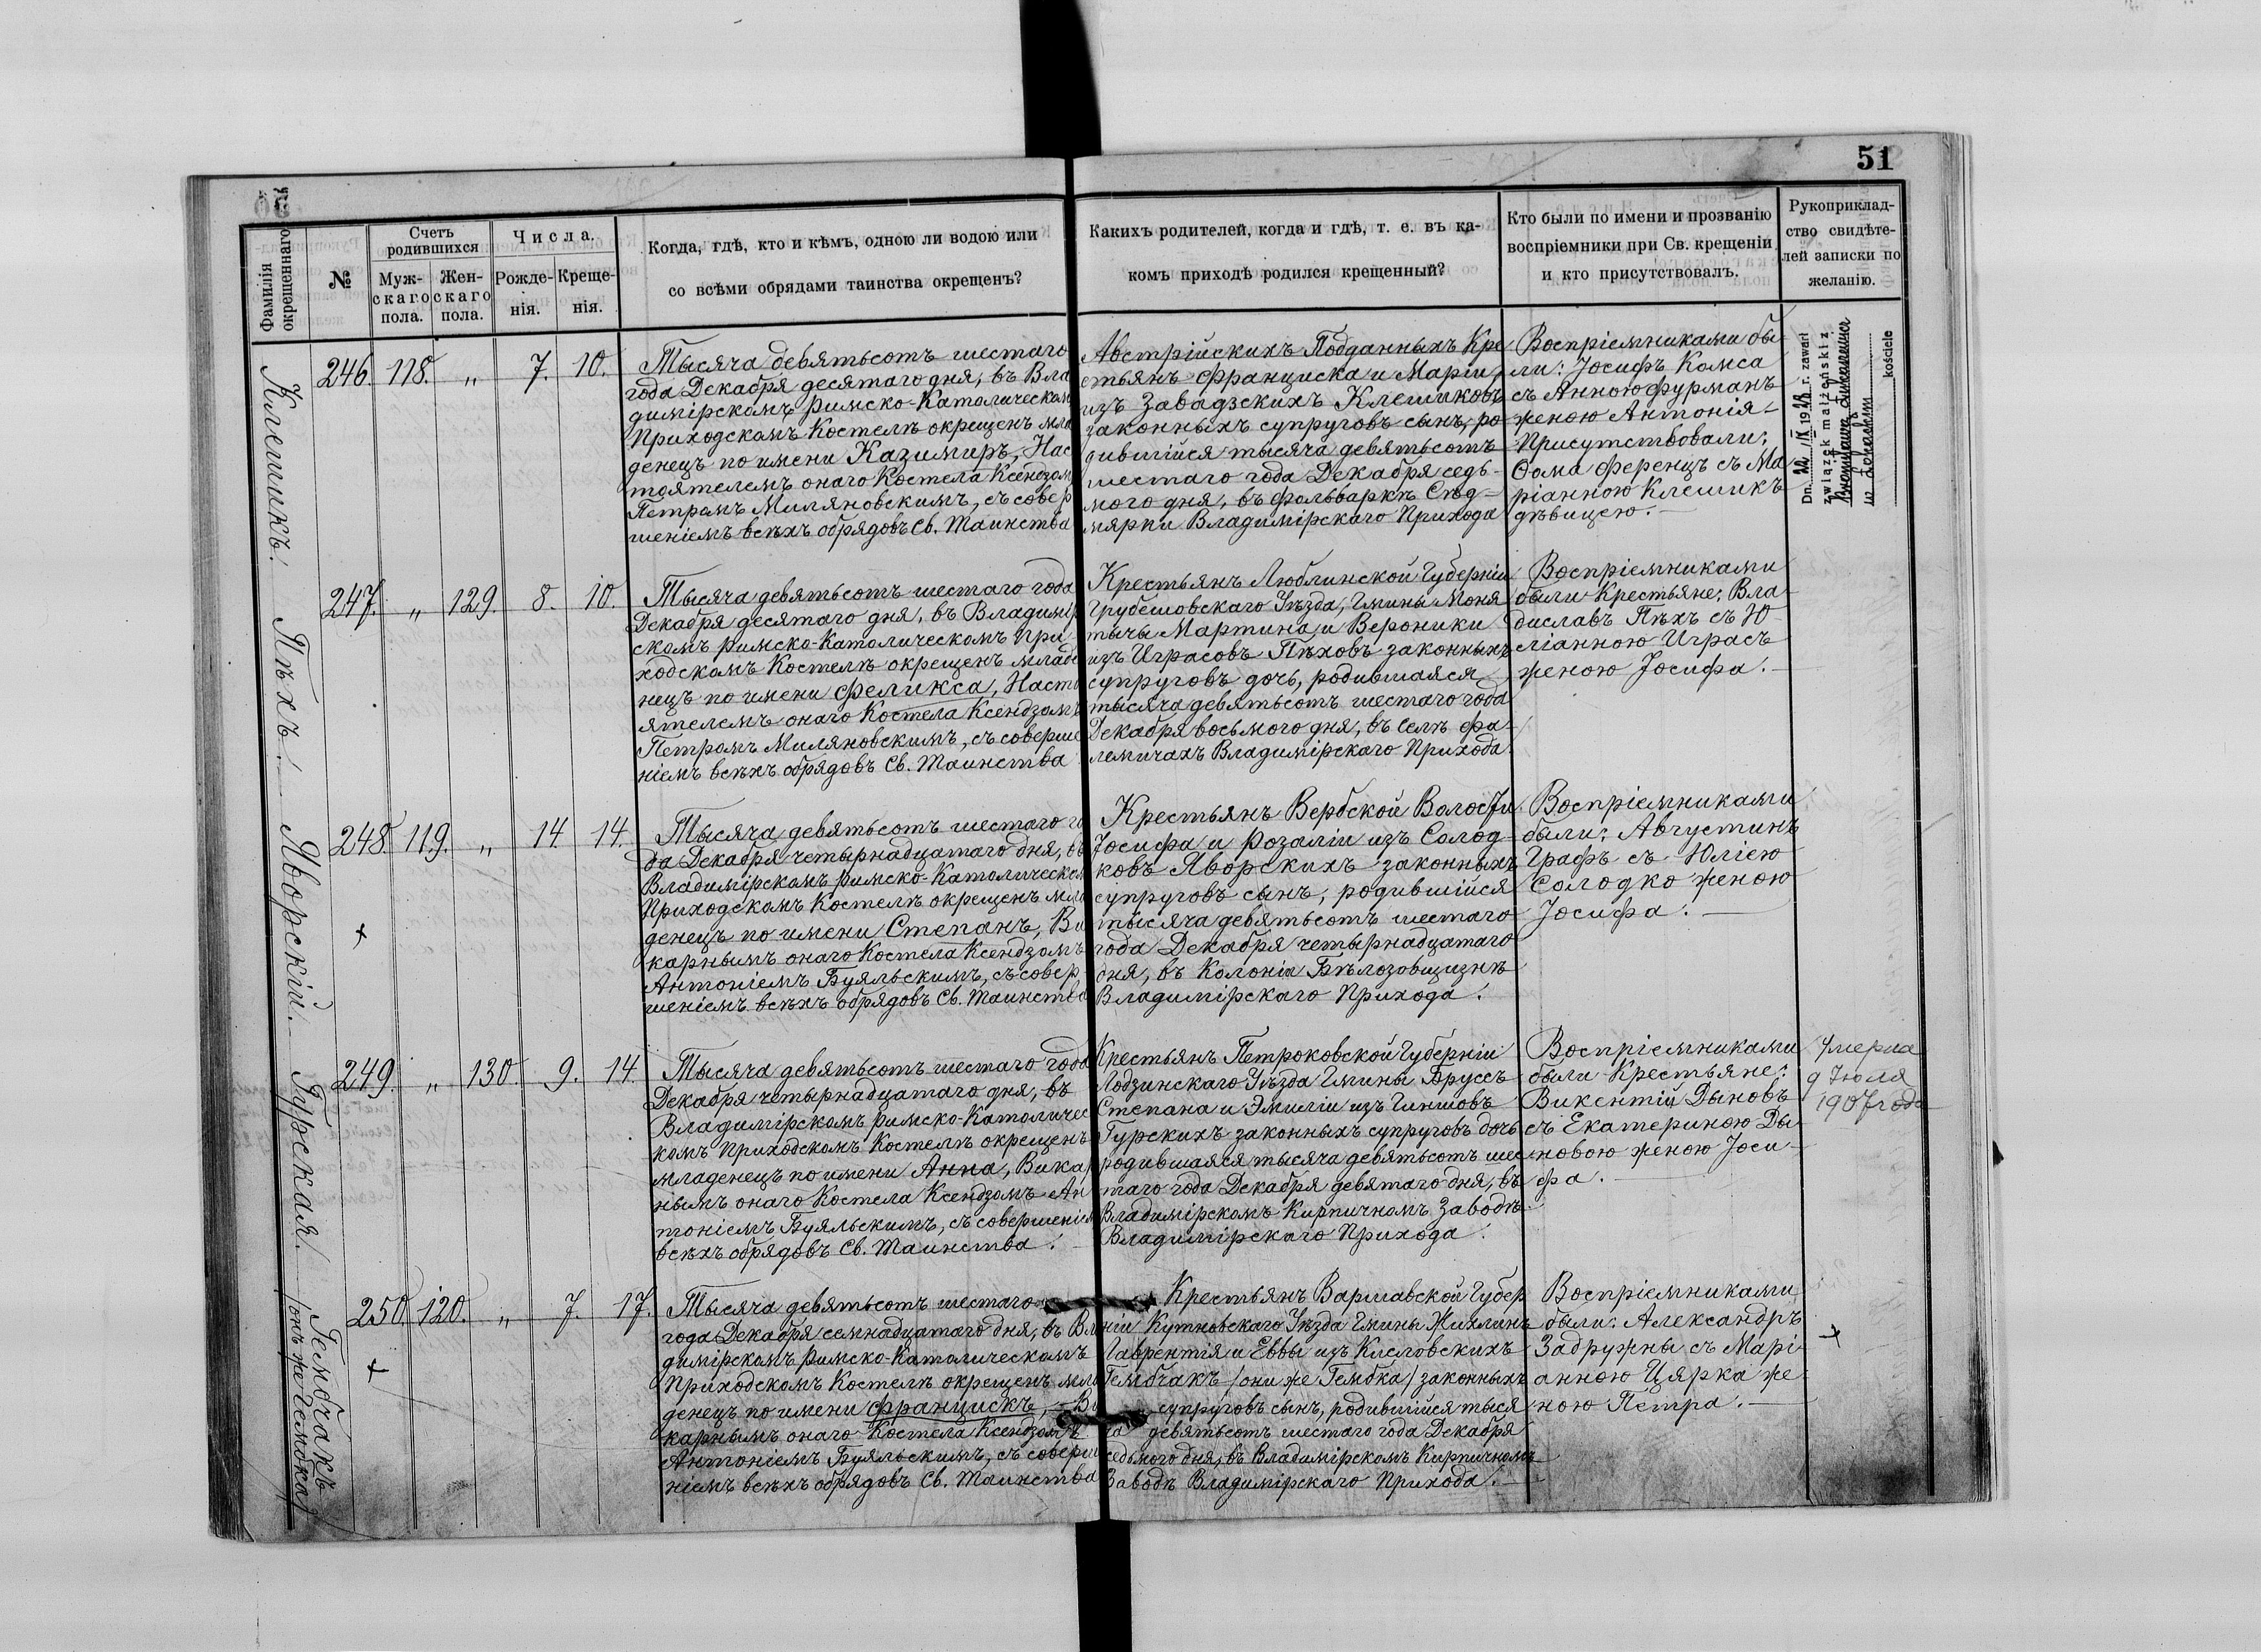 51
Фамилія окрещеннаго
№
Счетъ родившихся
Муж-
скаго
пола.
Жен-
скаго
пола.
Числа.
Рожде-
нія.
Креще-
нія.
Когда, гдѣ, кто и кѣмъ, одною ли водою или
со всѣми обрядами таинства окрещенъ?
Какихъ родителей, когда и гдѣ, т. е. въ ка-
комъ приходѣ родился крещенный?
Кто были по имени и прозванію
воспріемники при Св. крещеніи
и кто присутствовалъ.
Рукоприклад-
ство свидѣте-
лей записки по
желанію.
Клешикъ.
246. 118. „ 7. 10.
Тысяча девятьсотъ шестаго
года Декабря десятаго дня, въ Вла
димірскомъ Римско-Католическом
Приходскомъ Костелѣ окрещенъ мла
денецъ по имени Казимиръ, Нас
тоятелемъ онаго Костела Ксендзом
Петромъ Миляновскимъ, съ совер
шеніемъ всѣхъ обрядовъ Св. Таинства
Австрійскихъ Подданныхъ Кре
стьянъ Франциска и Маріи,
изъ Завадзскихъ Клешиковъ
законныхъ супруговъ сынъ, ро-
дившійся тысяча девятьсотъ
шестаго года Декабря седь-
мого дня, въ фольваркѣ Сѣд-
мярки Владимірскаго Прихода
Воспріемниками бы-
ли: Іосифъ Комса
съ Анною Фурманъ
женою Антонія
Присутствовали:
Ѳома Ференцъ съ Ма
ріанною Клешикъ
дѣвицею.
Dn. 22/IX 1928 r. zawarł
związek małżeński z
w kościele
Пѣхъ.
247. „ 129. 8. 10.
Тысяча девятьсотъ шестаго года
Декабря десятаго дня, въ Владимір
скомъ Римско-Католическомъ При-
ходскомъ Костелѣ окрещенъ младе
нецъ по имени Феликса, Насто
ятелемъ онаго Костела Ксендзомъ
Петромъ Миляновскимъ, съ соверше
ніемъ всѣхъ обрядовъ Св. Таинства
Крестьянъ Люблинской Губерніи
Грубешовскаго Уѣзда, Гмины Моня
тычы Мартина и Вероники
изъ Играсовъ Пѣховъ законныхъ
супруговъ дочь, родившаяся
тысяча девятьсотъ шестаго года
Декабря восьмого дня, въ селѣ Фа-
лемичахъ Владимірскаго Прихода.
Воспріемниками
были Крестьяне: Вла-
диславъ Пѣхъ съ Ю-
ліанною Играсъ
женою Іосифа.
Яворскій.
248. 119. „ 14. 14.
Тысяча девятьсотъ шестаго го
да Декабря четырнадцатаго дня, въ
Владимірскомъ Римско-Католическом
Приходскомъ Костелѣ окрещенъ мла
денецъ по имени Степанъ, Ви
карнымъ онаго Костела Ксендзомъ
Антоніемъ Буяльскимъ, съ совер-
шеніемъ всѣхъ обрядовъ Св. Таинства
Крестьянъ Вербской Волости
Іосифа и Розаліи изъ Солод-
ковъ Яворскихъ законныхъ
супруговъ сынъ, родившійся
тысяча девятьсотъ шестаго
года Декабря четырнадцатаго
дня, въ Колоніи Бѣлозовщизнѣ
Владимірскаго Прихода.
Воспріемниками
были: Августинъ
Графъ съ Юліею
Солодко женою
Іосифа.
Гурская.
249. „ 130. 9. 14.
Тысяча девятьсотъ шестаго года
Декабря четырнадцатаго дня, въ
Владимірскомъ Римско-Католичес
комъ Приходскомъ Костелѣ окрещенъ
младенецъ по имени Анна, Викар
нымъ онаго Костела Ксендзомъ Ан
тоніемъ Буяльскимъ, съ совершеніем
всѣхъ обрядовъ Св. Таинства.
Крестьянъ Петроковской Губерніи
Лодзинскаго Уѣзда Гмины Бруссъ
Степана и Эмиліи изъ Гиншовъ
Гурскихъ законныхъ супруговъ дочь
родившаяся тысяча девятьсотъ шес
таго года Декабря девятаго дня, въ
Владимірскомъ Кирпичномъ Заводѣ
Владимірскаго Прихода.
Воспріемниками
были Крестьяне:
Викентій Дыновъ
съ Екатериною Ды-
новою женою Іоси-
фа.
Умерла
9 Іюля
1907 года
Гембчакъ
/онъ же Гембка/
250. 120. „ 7. 17.
Тысяча девятьсотъ шестаго
года Декабря семнадцатаго дня, въ Вла
димірскомъ Римско-Католическомъ
Приходскомъ Костелѣ окрещенъ мла
денецъ по имени Францискъ, Ви
карнымъ онаго Костела Ксендзомъ
Антоніемъ Буяльскимъ, съ соверше
ніемъ всѣхъ обрядовъ Св. Таинства
Крестьянъ Варшавской Губер
ніи Кутновскаго Уѣзда Гмины Жихлинъ
Лаврентія и Еввы изъ Кисловскихъ
Гембчакъ /они же Гембка/ законныхъ
супруговъ сынъ, родившійся тыся
ча девятьсотъ шестаго года Декабря
седьмого дня, въ Владимірскомъ Кирпичномъ
Заводѣ Владимірскаго Прихода.
Воспріемниками
были: Александръ
Задружны съ Марі-
анною Цярка же-
ною Петра.